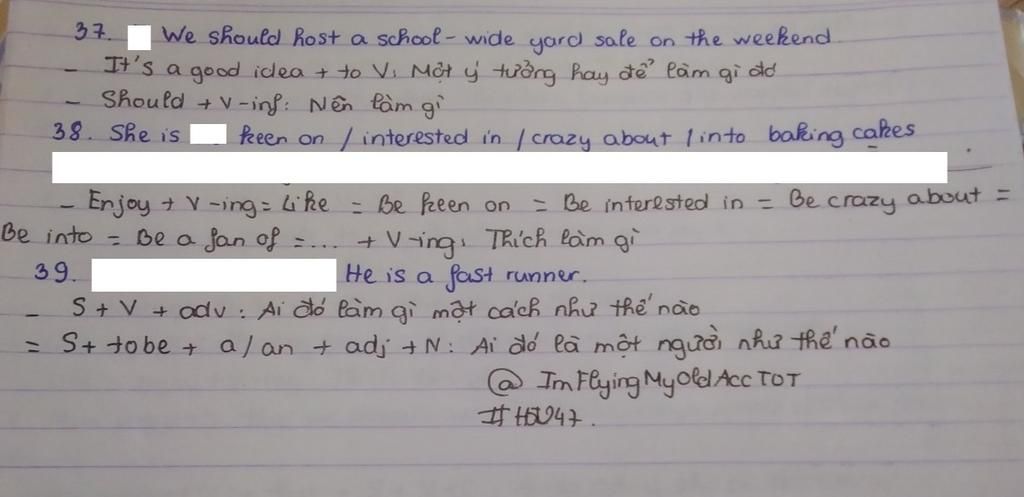 37. We should host a school-wide yard sale on the weekend.
- It's a good idea + to V: Một ý tưởng hay để làm gì đó
- Should + V-inf: Nên làm gì
38. She is keen on / interested in / crazy about / into baking cakes
- Enjoy + V-ing = Like = Be keen on = Be interested in = Be crazy about =
Be into = Be a fan of = ... + V-ing: Thích làm gì
39. He is a fast runner.
- S + V + adv: Ai đó làm gì một cách như thế nào
= S + tobe + a/an + adj + N: Ai đó là một người như thế nào
@ ImFlyingMyOldAccTOT